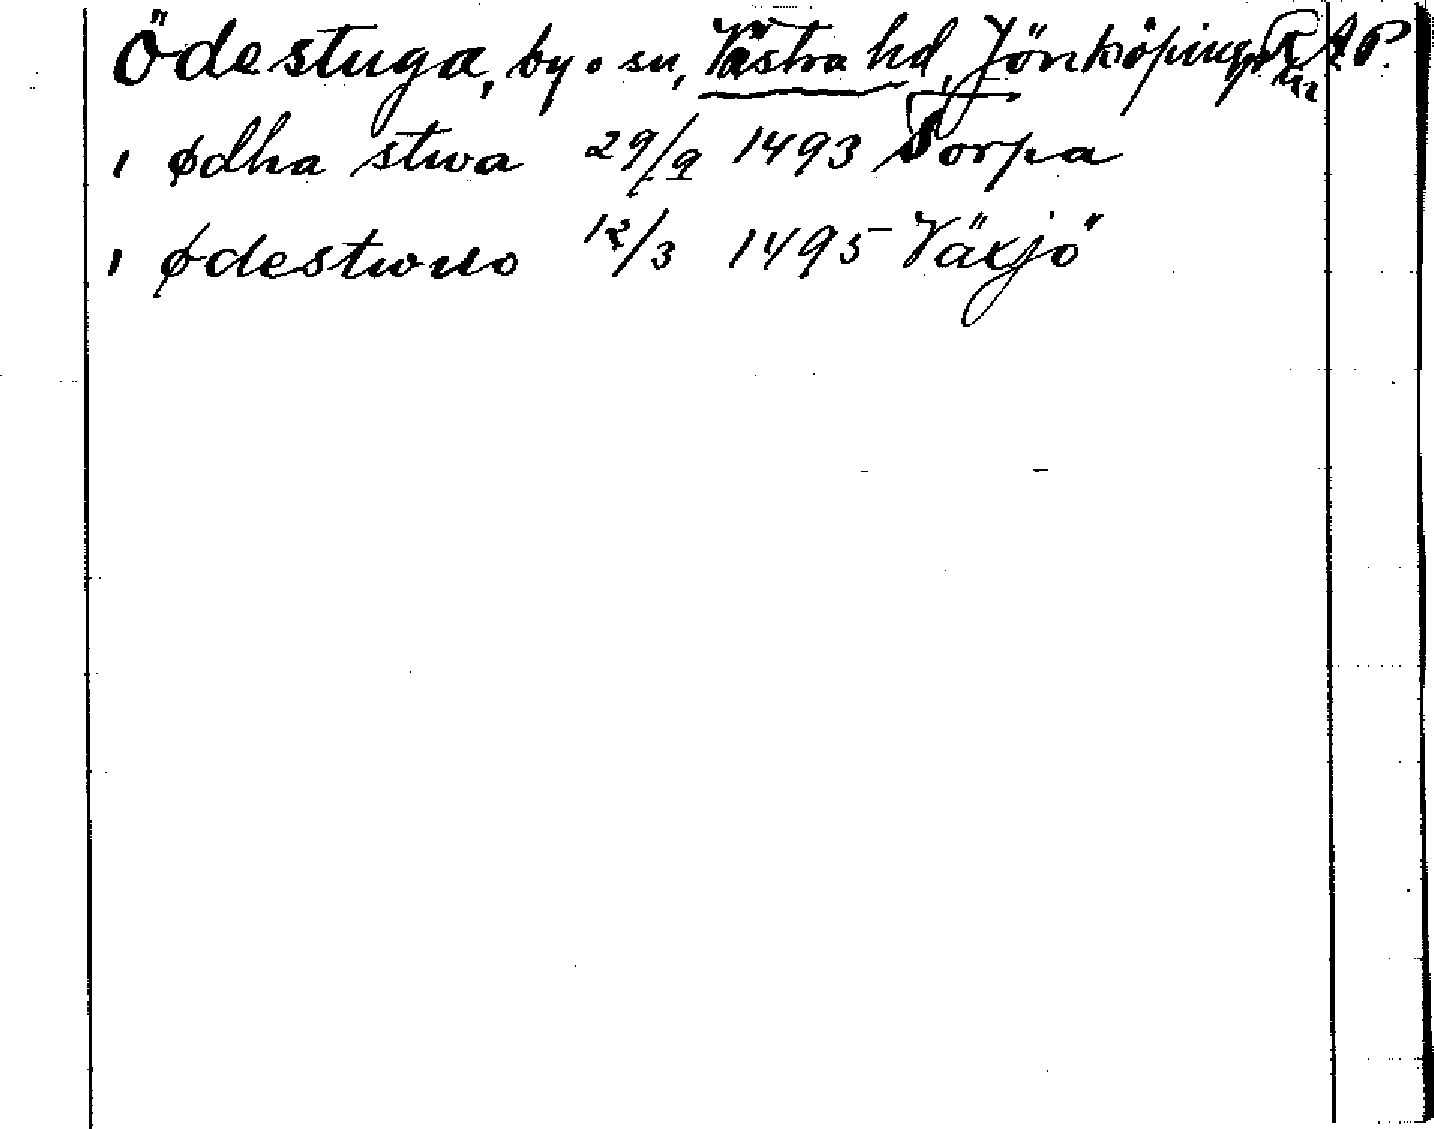 Ödestuga, by o sn, Västra hd, Jönköpings RAP.
i ødha stwa 29/9 1493 Torpa
i ødestwo 12/3 1495 Växjö